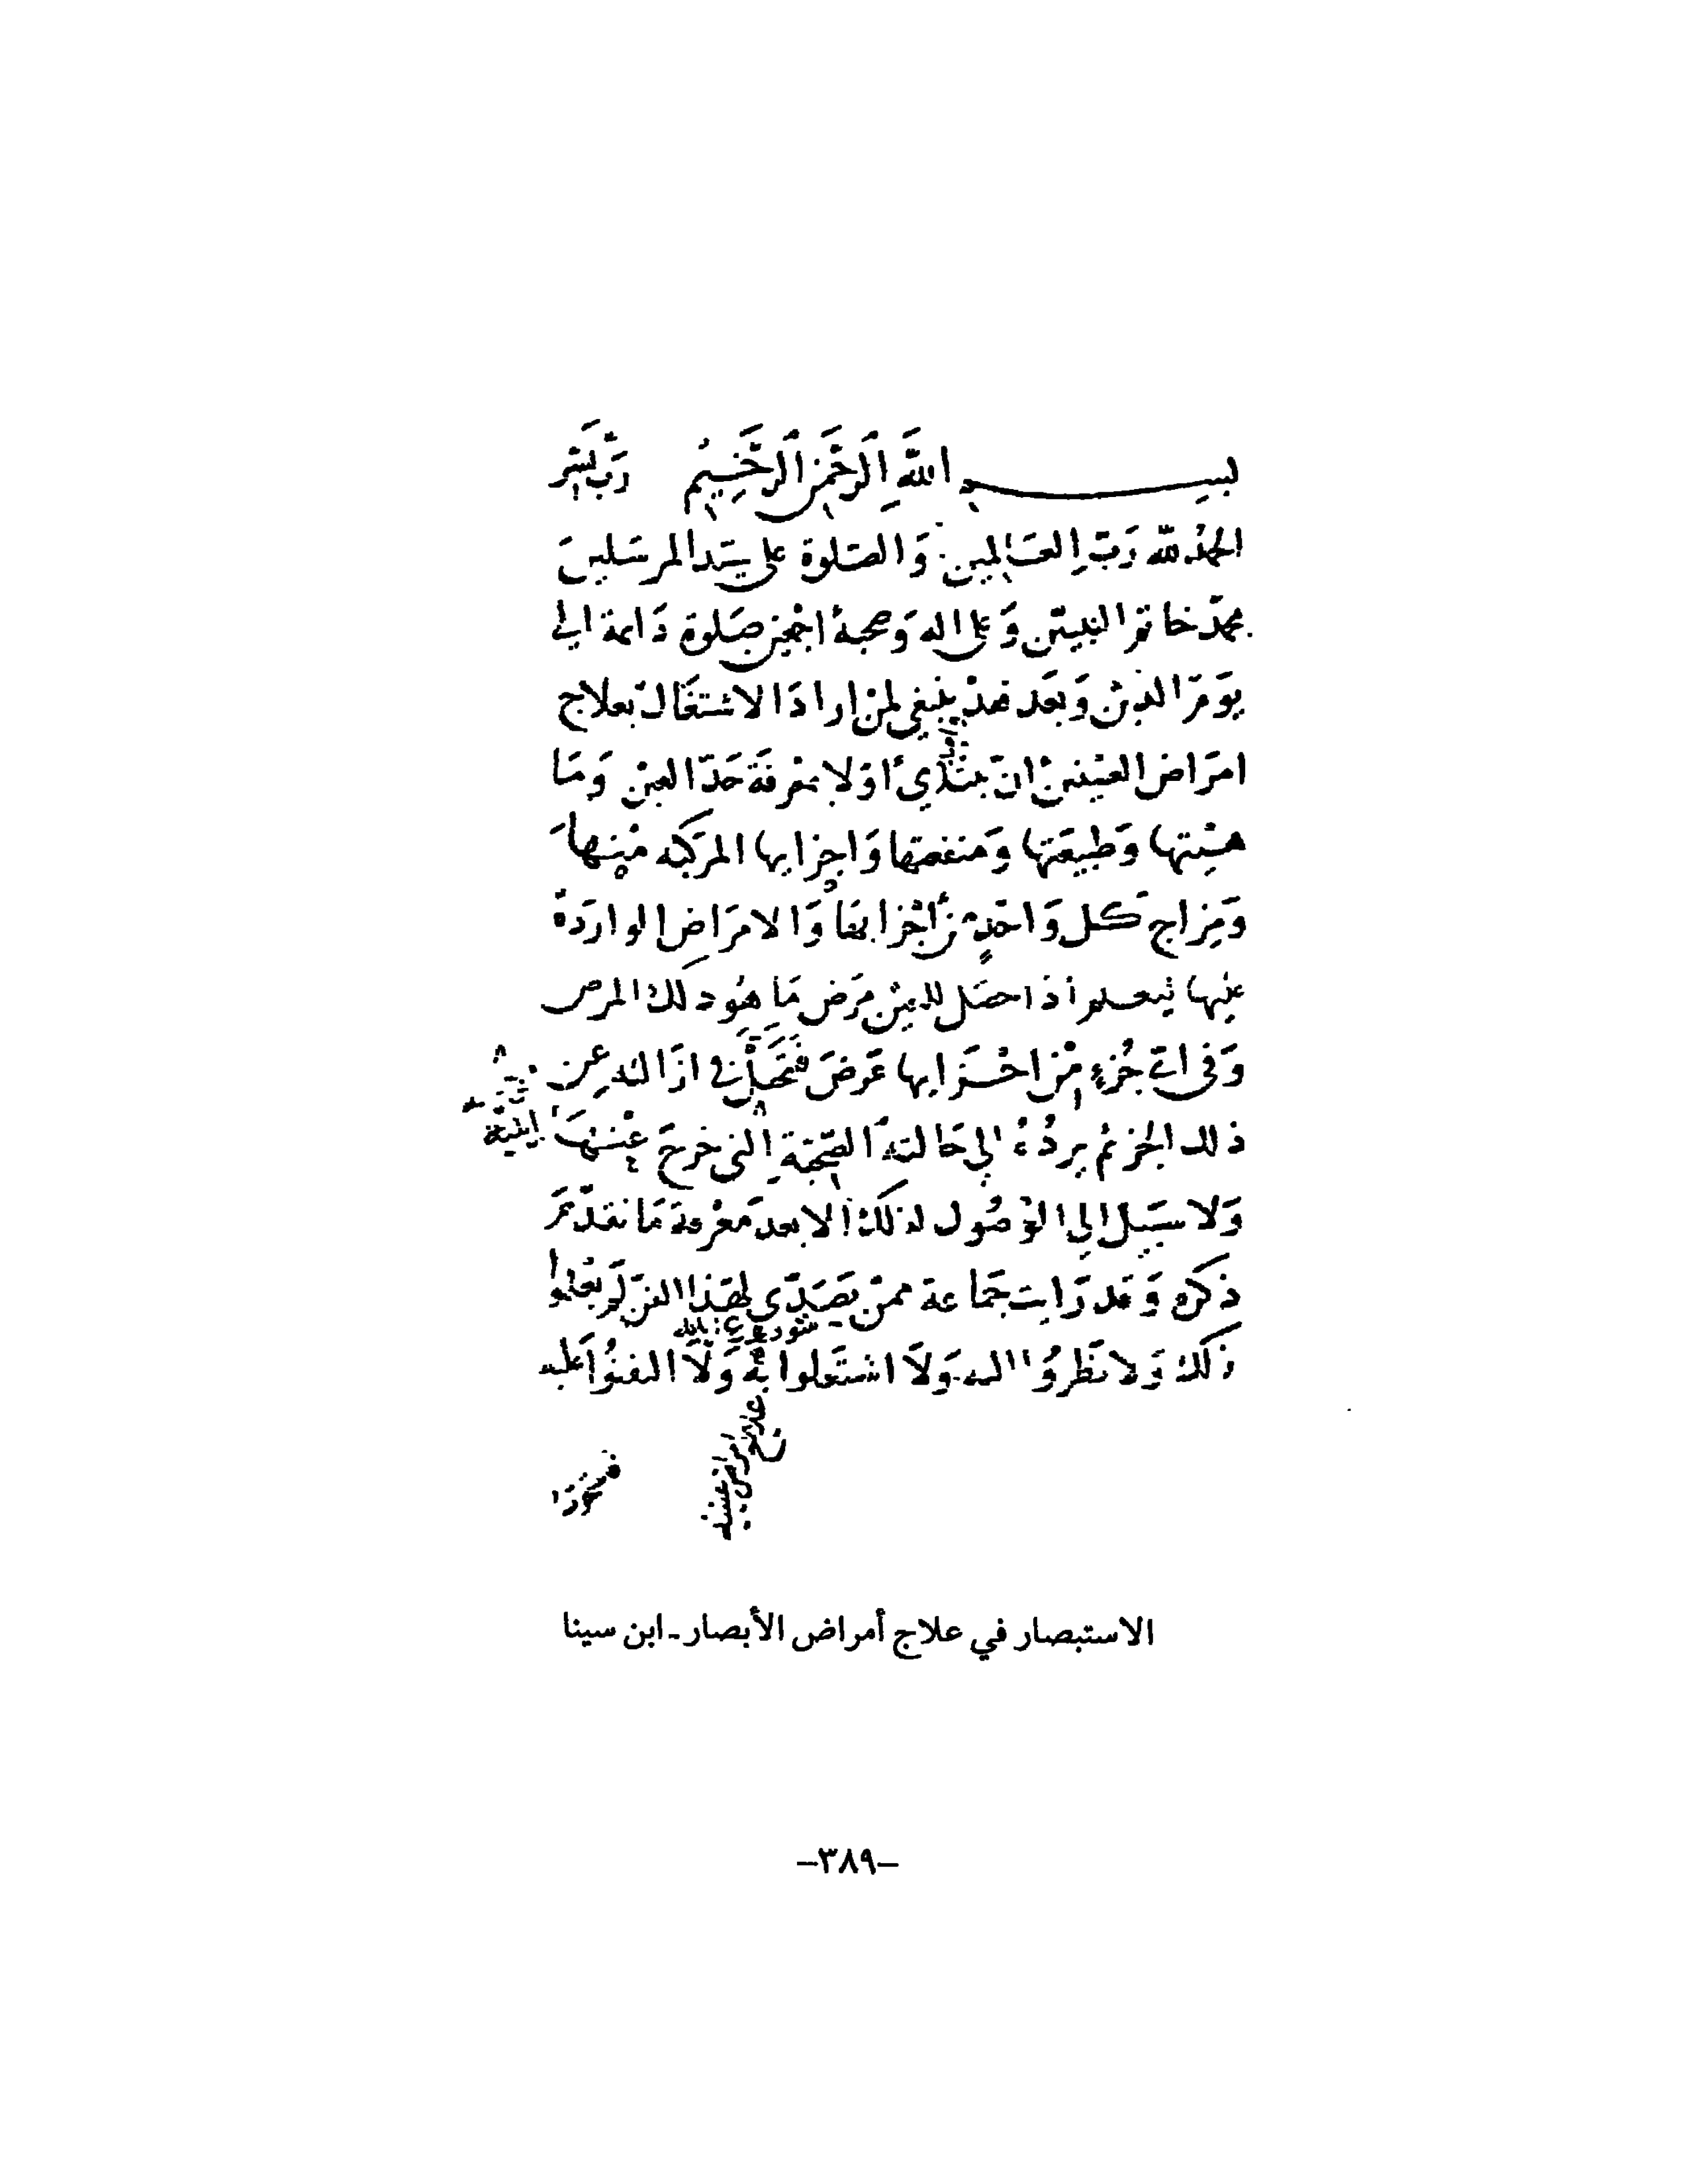 بسم الله الرحمن الرحيم رب يسر
الحمد لله رب العالمين والصلوة على سيد المرسلين
محمد خاتم النبيين وعلى اله وصحبه اجمعين صلوة دائمة الى
يوم الدين وبعد فقد ينبغي لمن اراد الاشتغال بعلاج
امراض العينين ان يبتدئ اولا بمعرفة حد العين وما
هيئتها وطبيعتها ومنفعتها واجزايها المركبه منها
ومزاج كل واحد من أجزايها والامراض الواردة
عليها ليعلم اذا حصل للعين مرض ما هو ذلك المرض
وفي اي جزء من اجزايها عرض فتحيل في ازالته عن
ذلك الجزء ثم يرده الى حالته الصحية التي خرج عنها
ولا سبيل الى الوصول لذلك الا بعد معرفة ما تقدم
ذكره وقد رايت جماعة ممن تصدى لهذا الفن لم يعلموا
ذلك ولا نظروا اليه ولا اشتغلوا به ولا التفتوا عليه
الاستبصار في علاج أمراض الأبصار - ابن سينا
–٣٨٩–